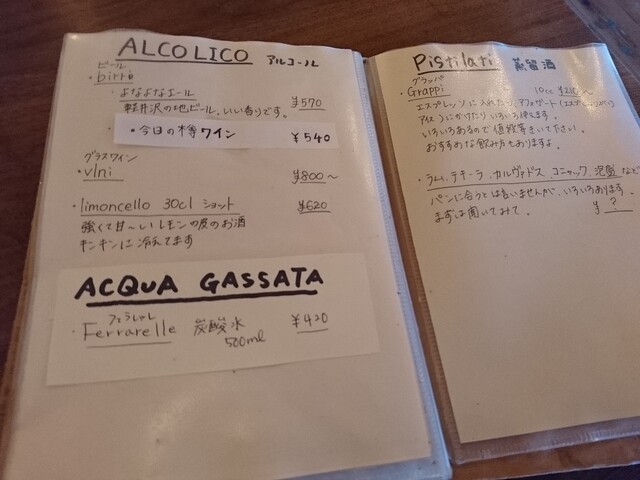 ALCOLICO アルコール
ビール
・birre
よなよなエール ¥570
軽井沢の地ビール、いい香りです。
・今日の樽ワイン ¥540
グラスワイン
・vini ¥800〜
・limoncello 30cl ショット ¥620
強くて甘〜いレモンの皮のお酒
キンキンに冷えてます
ACQUA GASSATA
フェラレッレ
・Ferrarelle 炭酸水 500ml ¥420
Distilati 蒸留酒
グラッパ
・Grappi 10cc ¥210〜
エスプレッソに入れたり、アフォガート(エスプレッソがけ
アイス)にかけたりいろいろ使えます。
いろいろあるので値段等きいて下さい。
おすすめな飲み方もありますよ。
・ラム、テキーラ、カルヴァドス、コニャック、泡盛など
パンに合うとは言いませんが、いろいろあります。
まずは聞いてみて。 ¥ ?